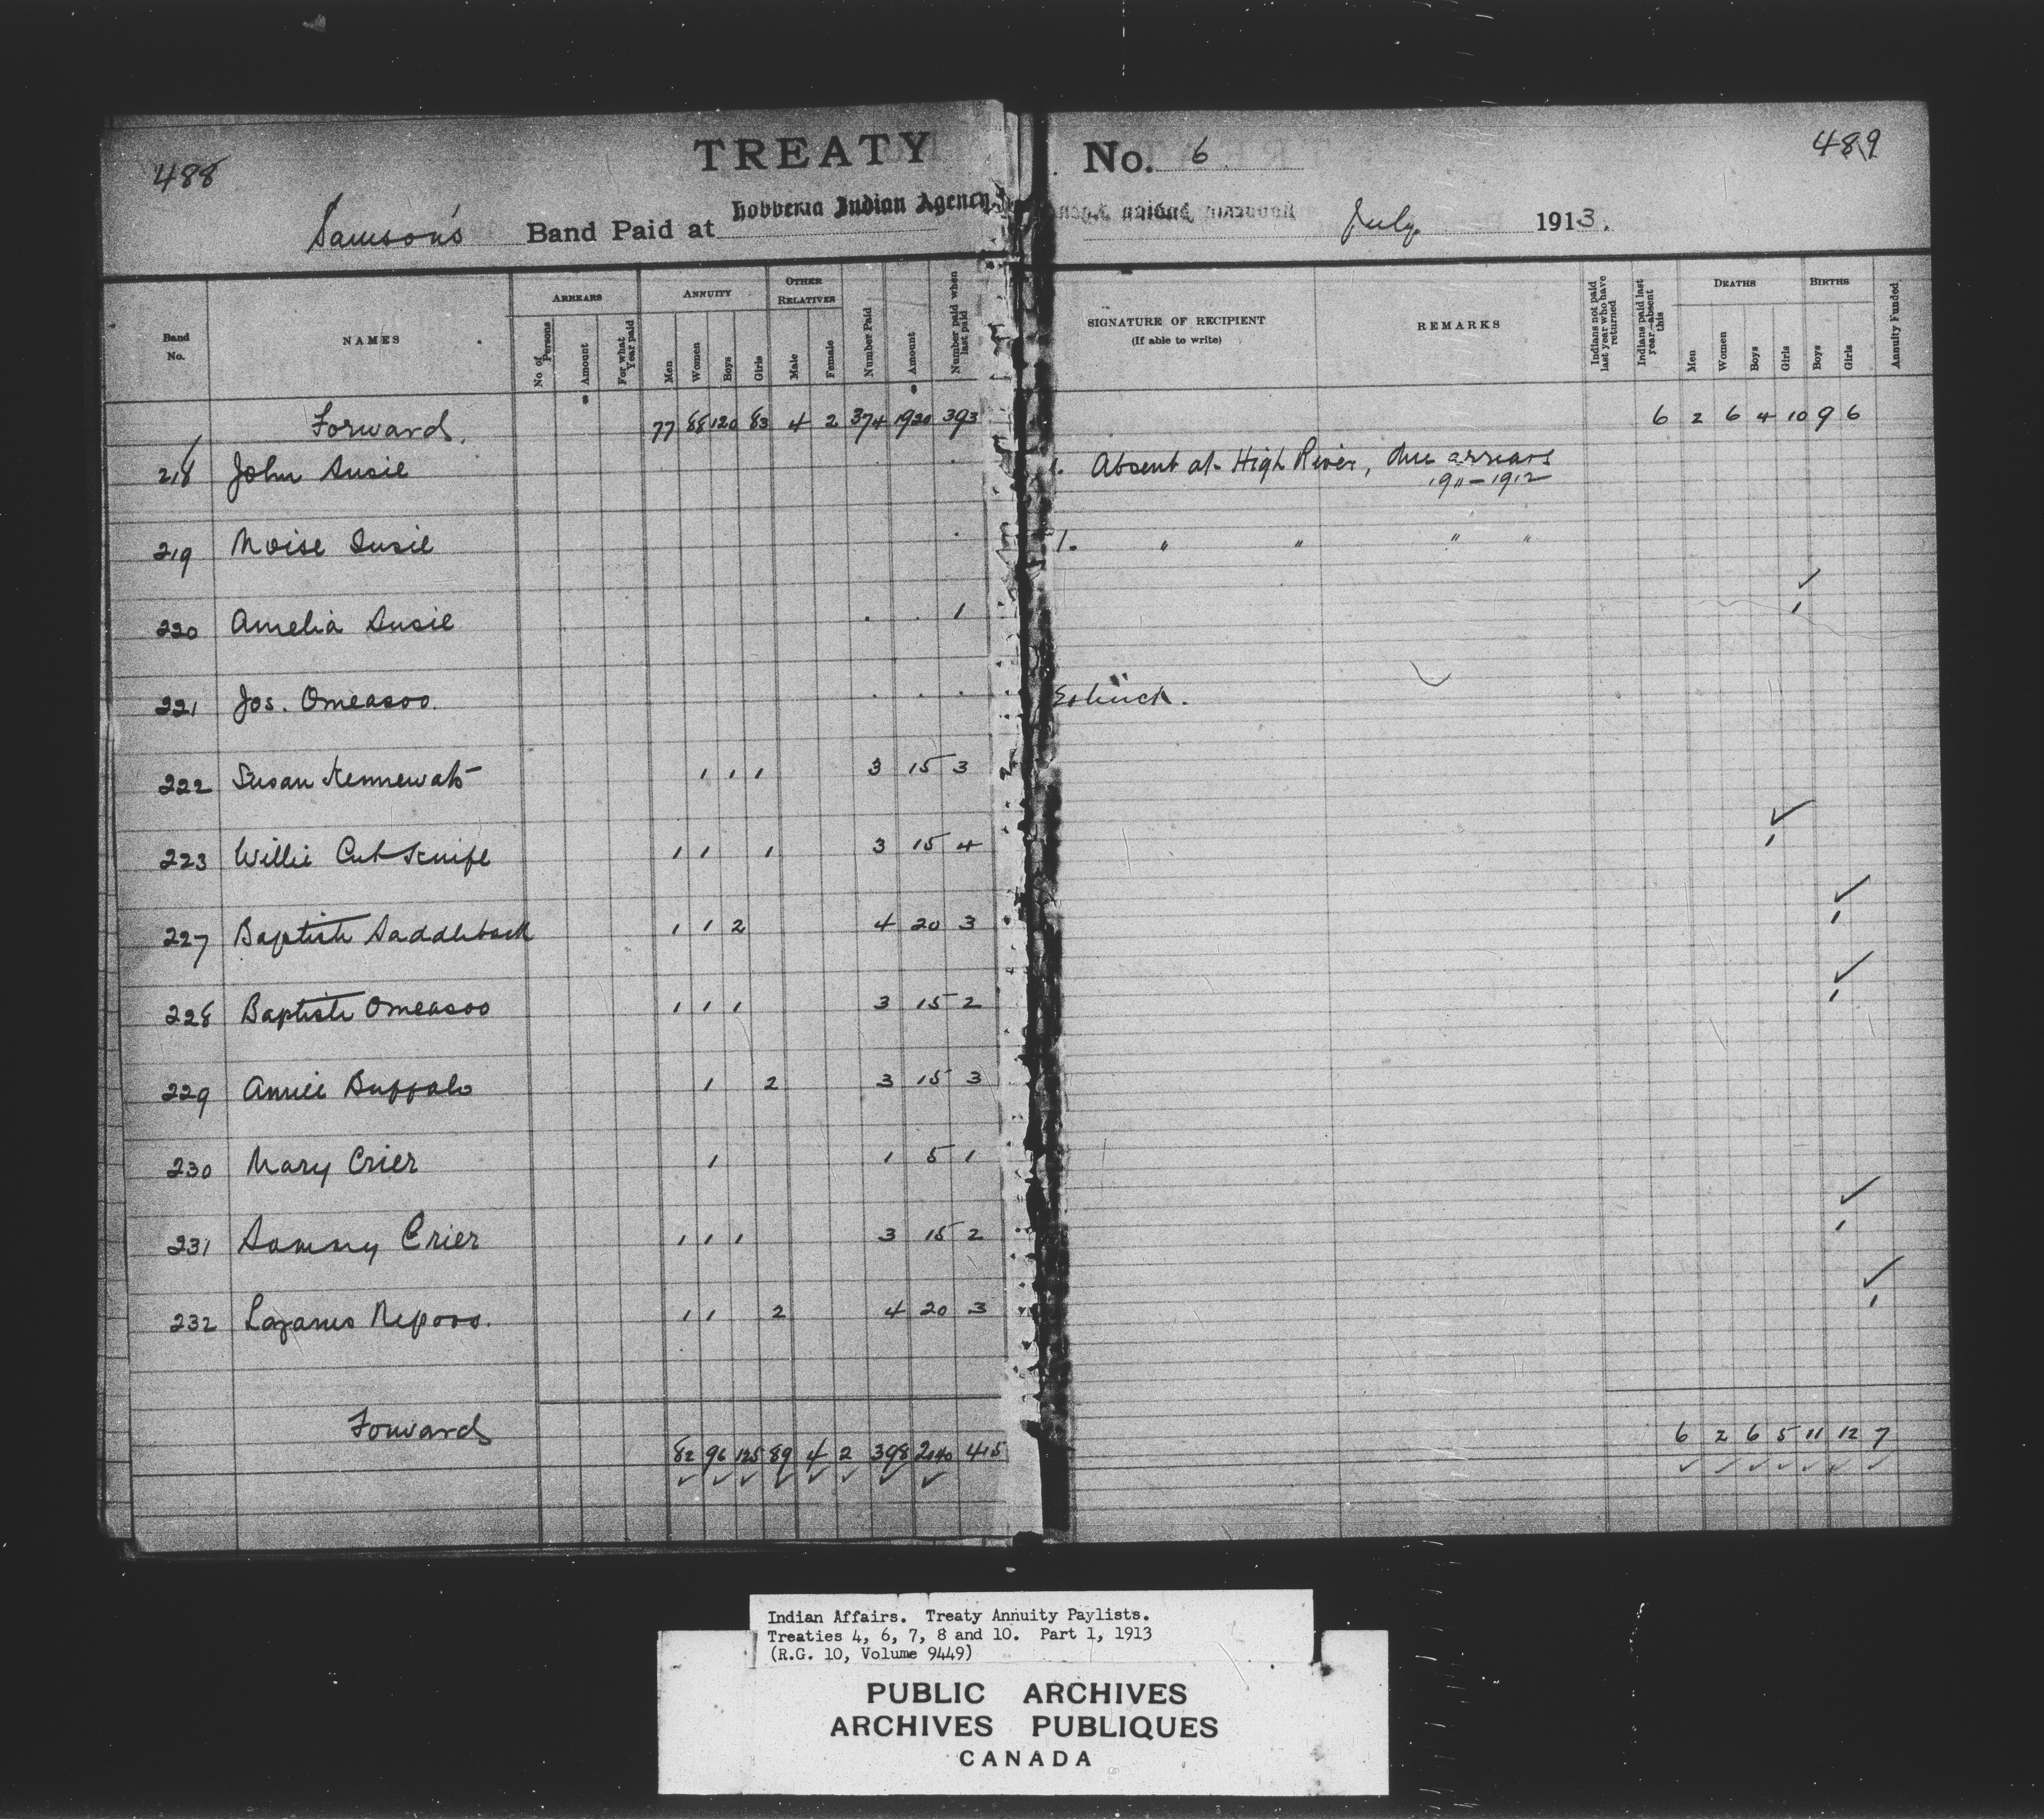 488
TREATY No. 6
489
Samson's Band Paid at Hobbema Indian Agency July 1913.
Band No. NAMES ARREARS ANNUITY OTHER RELATIVES Number Paid Amount Number paid when last paid SIGNATURE OF RECIPIENT (If able to write) REMARKS Indians not paid last year who have returned Indians paid last year—absent this DEATHS BIRTHS Annuity Funded
No. of Persons Amount For what Year paid Men Women Boys Girls Male Female Men Women Boys Girls Boys Girls
Forward. 77 88 120 83 4 2 374 1920 393 6 2 6 4 10 9 6
218 John Susie 1. Absent at High River, due arrears
1911-1912
219 Moise Susie 1. " " " "
220 Amelia Susie 1 1
221 Jos. Omeasoo.
222 Susan 1 1 1 3 15 3
223 Willie Cut Knife 1 1 1 3 15 4 1
227 Baptiste Saddleback 1 1 2 4 20 3 1
228 Baptiste Omeasoo 1 1 1 3 15 2 1
229 Annie Buffalo 1 2 3 15 3
230 Mary Crier 1 1 5 1
231 Sammy Crier 1 1 1 3 15 2 1
232 Lazarus Nepoos. 1 1 2 4 20 3 1
Forward 82 96 125 89 4 2 398 2040 415 6 2 6 5 11 12 7
Indian Affairs. Treaty Annuity Paylists.
Treaties 4, 6, 7, 8 and 10. Part 1, 1913
(R.G. 10, Volume 9449)
PUBLIC ARCHIVES
ARCHIVES PUBLIQUES
CANADA